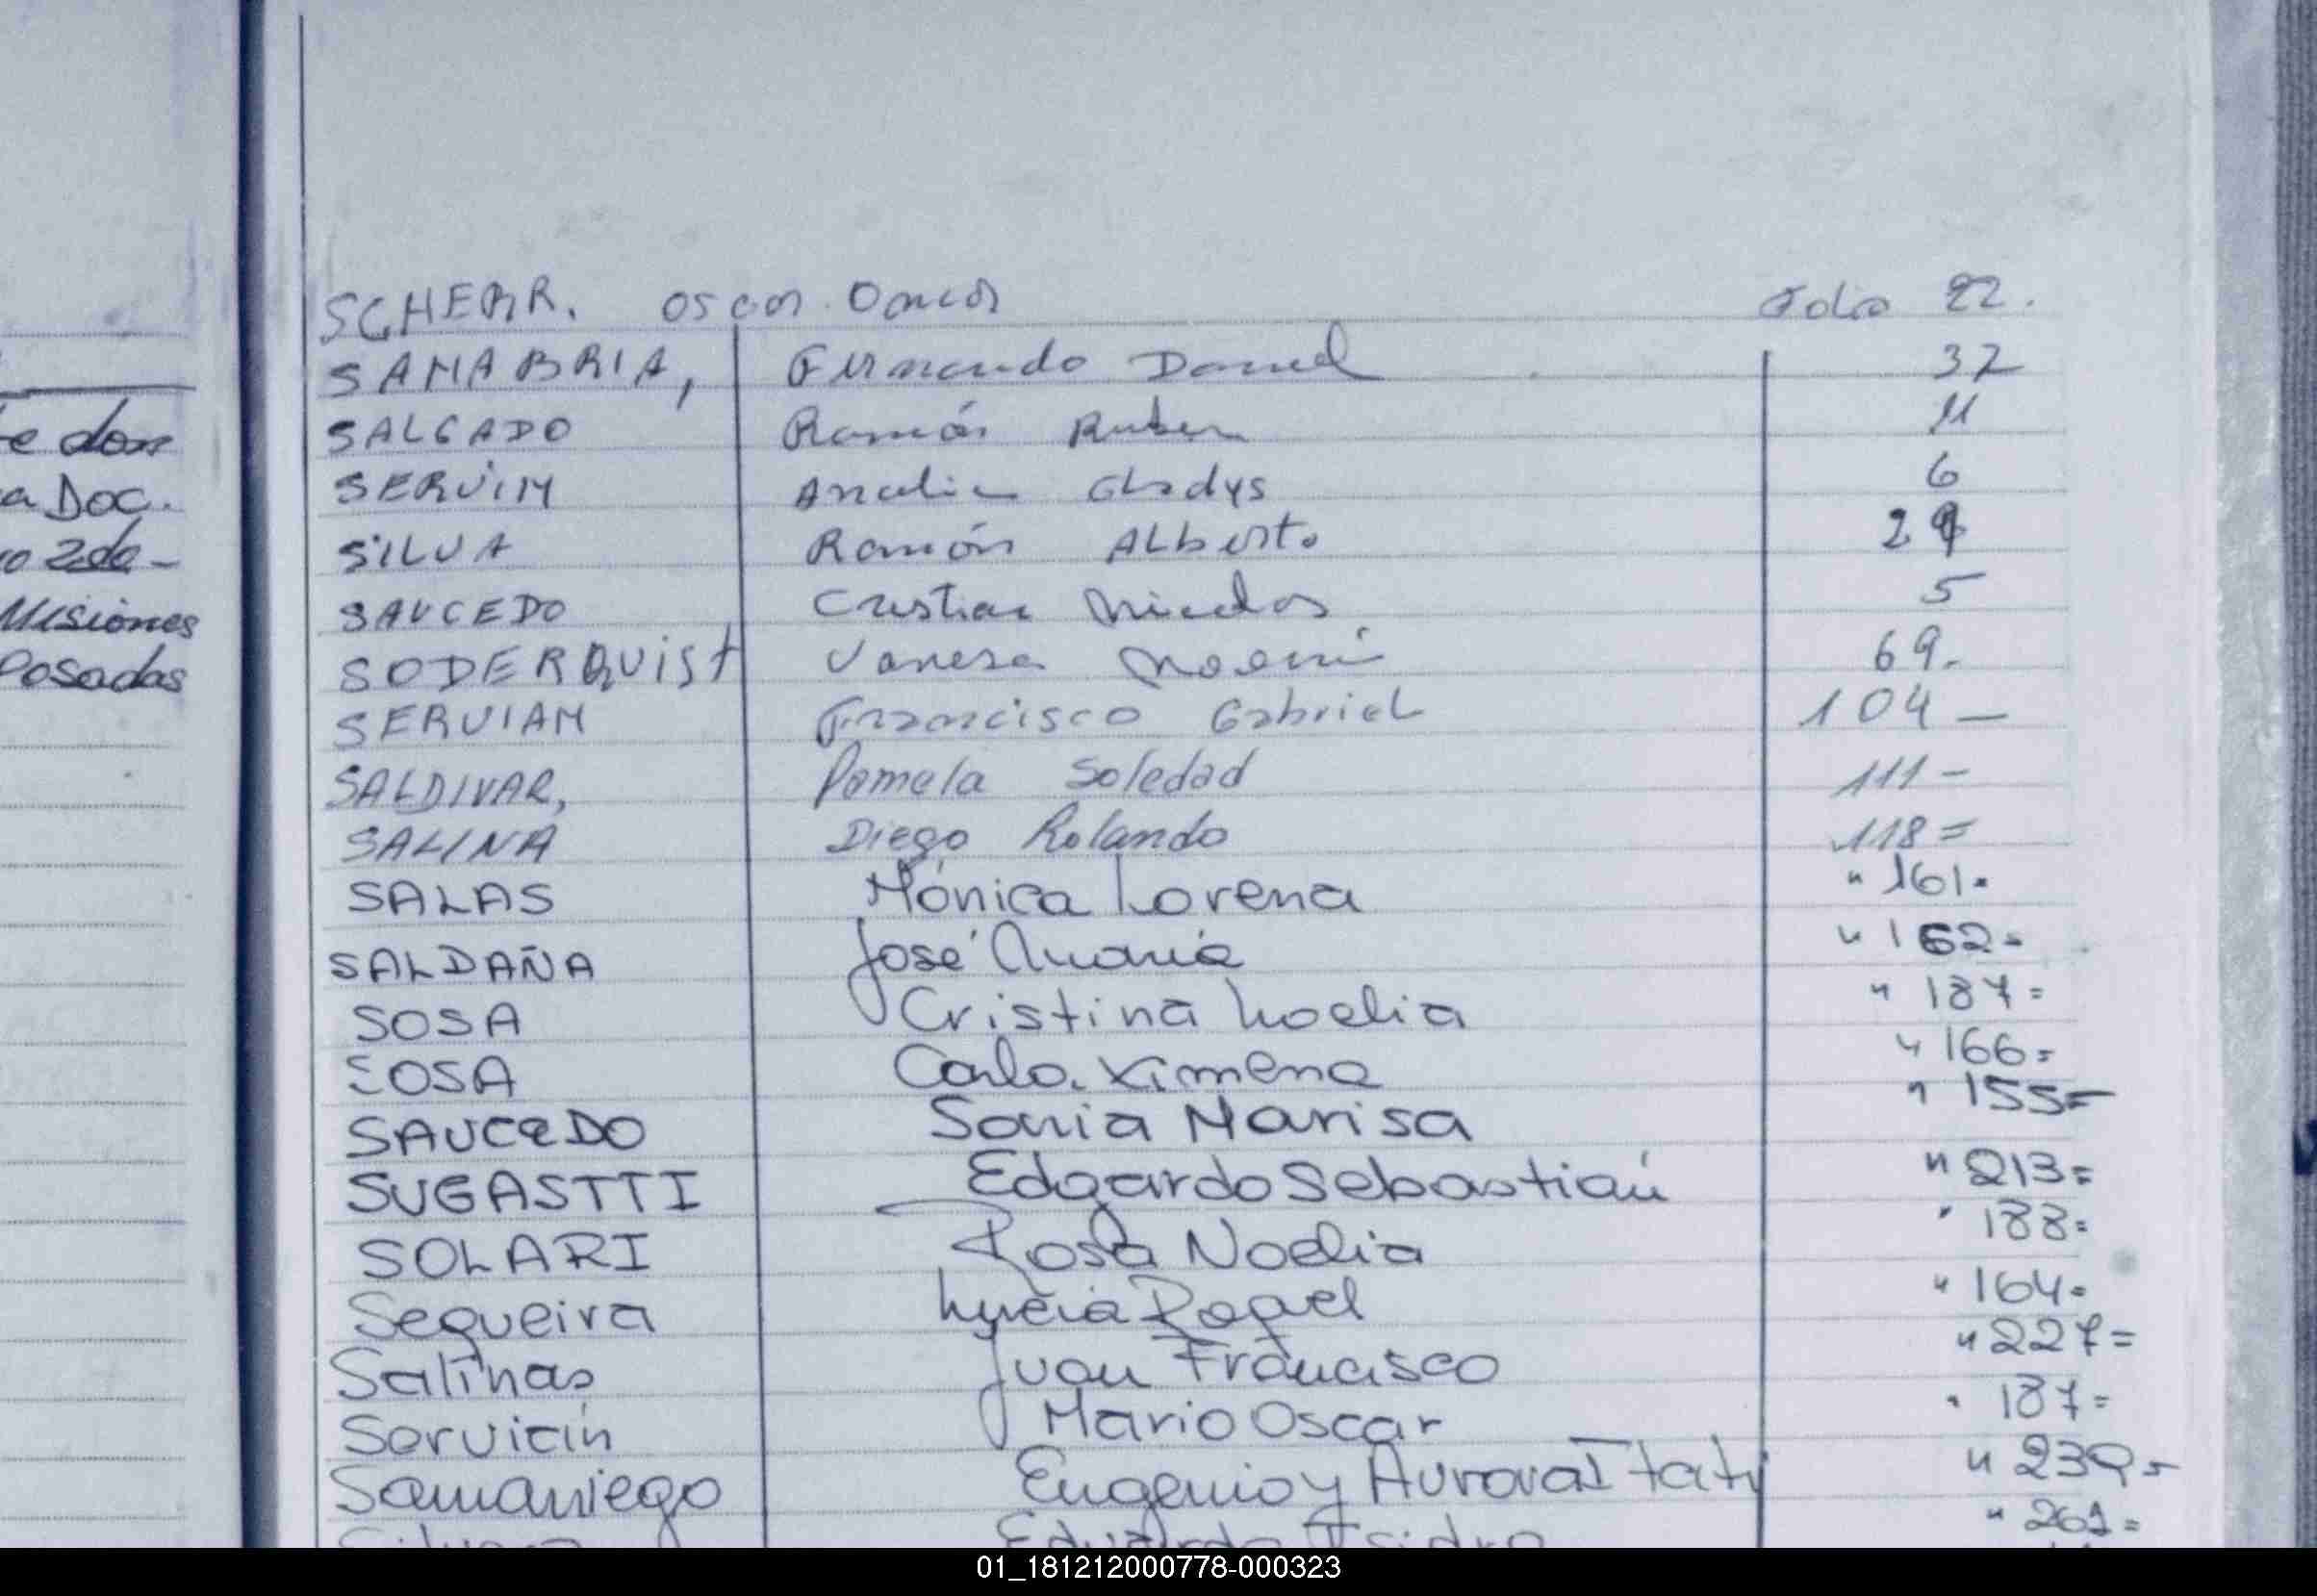 e don
a Doc.
Misiones
Posadas
SCHERR. Oscar Omar Folio 22.
SANABRIA, Fernando Daniel 32
SALGADO Ramón Ruben 11
SERViN Analia Gladys 6
SiLVA Ramón ALberto 2
SAUCEDO Cristian Nicolas 5
SODERQUist Vanesa Noemí 69.
SERVIAN Francisco Gabriel 104 -
SALDIVAR, Pamela Soledad 111 -
SALINA Diego Rolando 118 =
SALAS Mónica Lorena " 161.
SALDAÑA José Maria " 162=
SOSA Cristina Noelia " 187=
SOSA Carla Ximena " 166=
SAUCeDO Sonia Marisa " 155=
SUGASTTI Edgardo Sebastián " 213=
SOLARI Rosa Noelia " 188=
Sequeira Lucia Raquel " 164=
Salinas Juan Francisco " 227=
Servián Mario Oscar " 187=
Samaniego Eugenio y Aurora Itatí " 239=
Eduardo Isidro " 261=
01_181212000778-000323